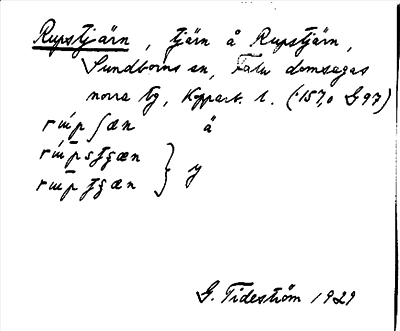 Rupstjärn, tjärn å Rupstjärn,
Sundborns sn, Falu domsagas
norra tg, Kopparb. l. (:157,0 G 97)
å
y
G. Tideström 1929